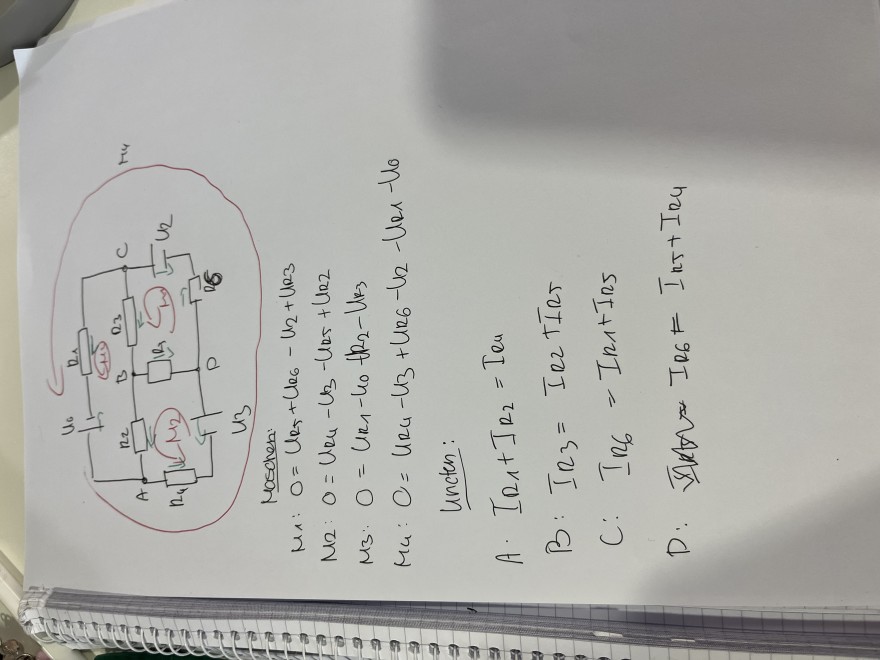 M4
U0
R1
C
U2
M1
R3
M3
R6
A
R2
B
R5
D
M2
R4
U3
Maschen:
M1: 0 = UR5 + UR6 - U2 + UR3
M2: 0 = UR4 - U3 - UR5 + UR2
M3: 0 = UR1 - U0 + UR2 - UR3
M4: 0 = UR4 - U3 + UR6 - U2 - UR1 - U0
Knoten:
A: IR1 + IR2 = IR4
B: IR3 = IR2 + IR5
C: IR6 = IR1 + IR5
D: IR6 = IR5 + IR4